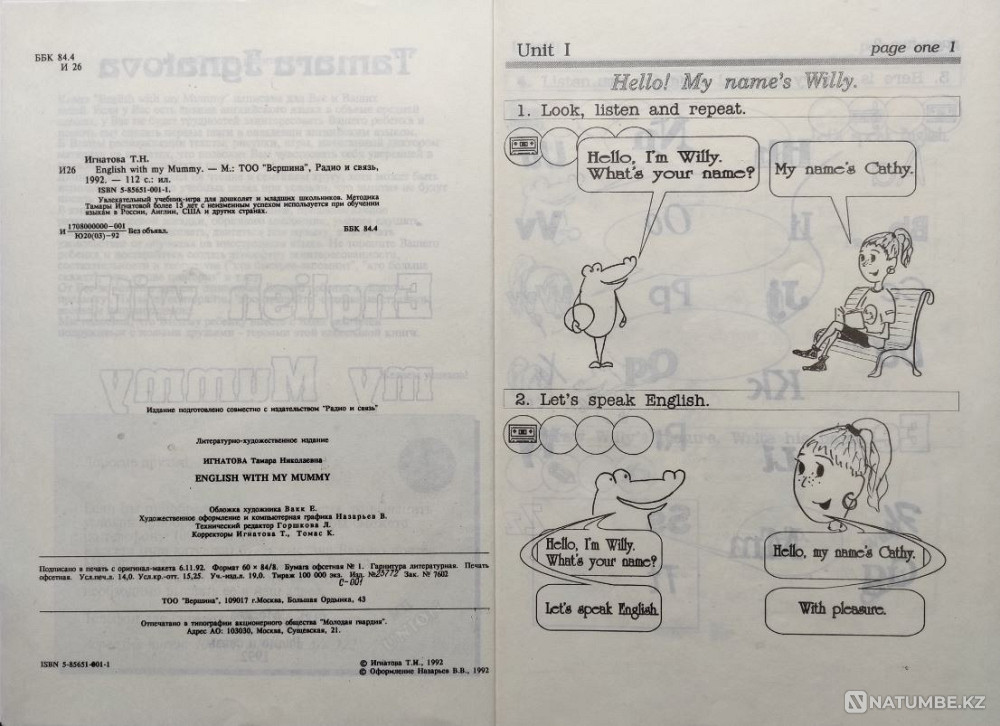 ББК 84.4
И 26
Игнатова Т.Н.
И26 English with my Mummy. — М.: ТОО "Вершина", Радио и связь,
1992. — 112 с.: ил.
ISBN 5-85651-001-1.
Увлекательный учебник-игра для дошколят и младших школьников. Методика
Тамары Игнатовой более 15 лет с неизменным успехом используется при обучении
языкам в России, Англии, США и других странах.
И 1708000000-001 Без объявл. ББК 84.4
Ю20(03)-92
Издание подготовлено совместно с издательством "Радио и связь"
Литературно-художественное издание
ИГНАТОВА Тамара Николаевна
ENGLISH WITH MY MUMMY
Обложка художника Вакк Е.
Художественное оформление и компьютерная графика Назарьев В.
Технический редактор Горшкова Л.
Корректоры Игнатова Т., Томас К.
Подписано в печать с оригинал-макета 6.11.92. Формат 60 × 84/8. Бумага офсетная № 1. Гарнитура литературная. Печать
офсетная. Усл.печ.л. 14,0. Усл.кр.-отт. 15,25. Уч.-изд.л. 19,0. Тираж 100 000 экз. Изд. №23772 Зак. № 7602
С-001
ТОО "Вершина", 109017 г.Москва, Большая Ордынка, 43
Отпечатано в типографии акционерного общества "Молодая гвардия".
Адрес АО: 103030, Москва, Сущевская, 21.
ISBN 5-85651-001-1
© Игнатова Т.Н., 1992
© Оформление Назарьев В.В., 1992
Unit I page one 1
Hello! My name's Willy.
1. Look, listen and repeat.
Hello, I'm Willy.
What's your name?
My name's Cathy.
2. Let's speak English.
Hello, I'm Willy.
What's your name?
Hello, my name's Cathy.
Let's speak English.
With pleasure.
NATUMBE.KZ